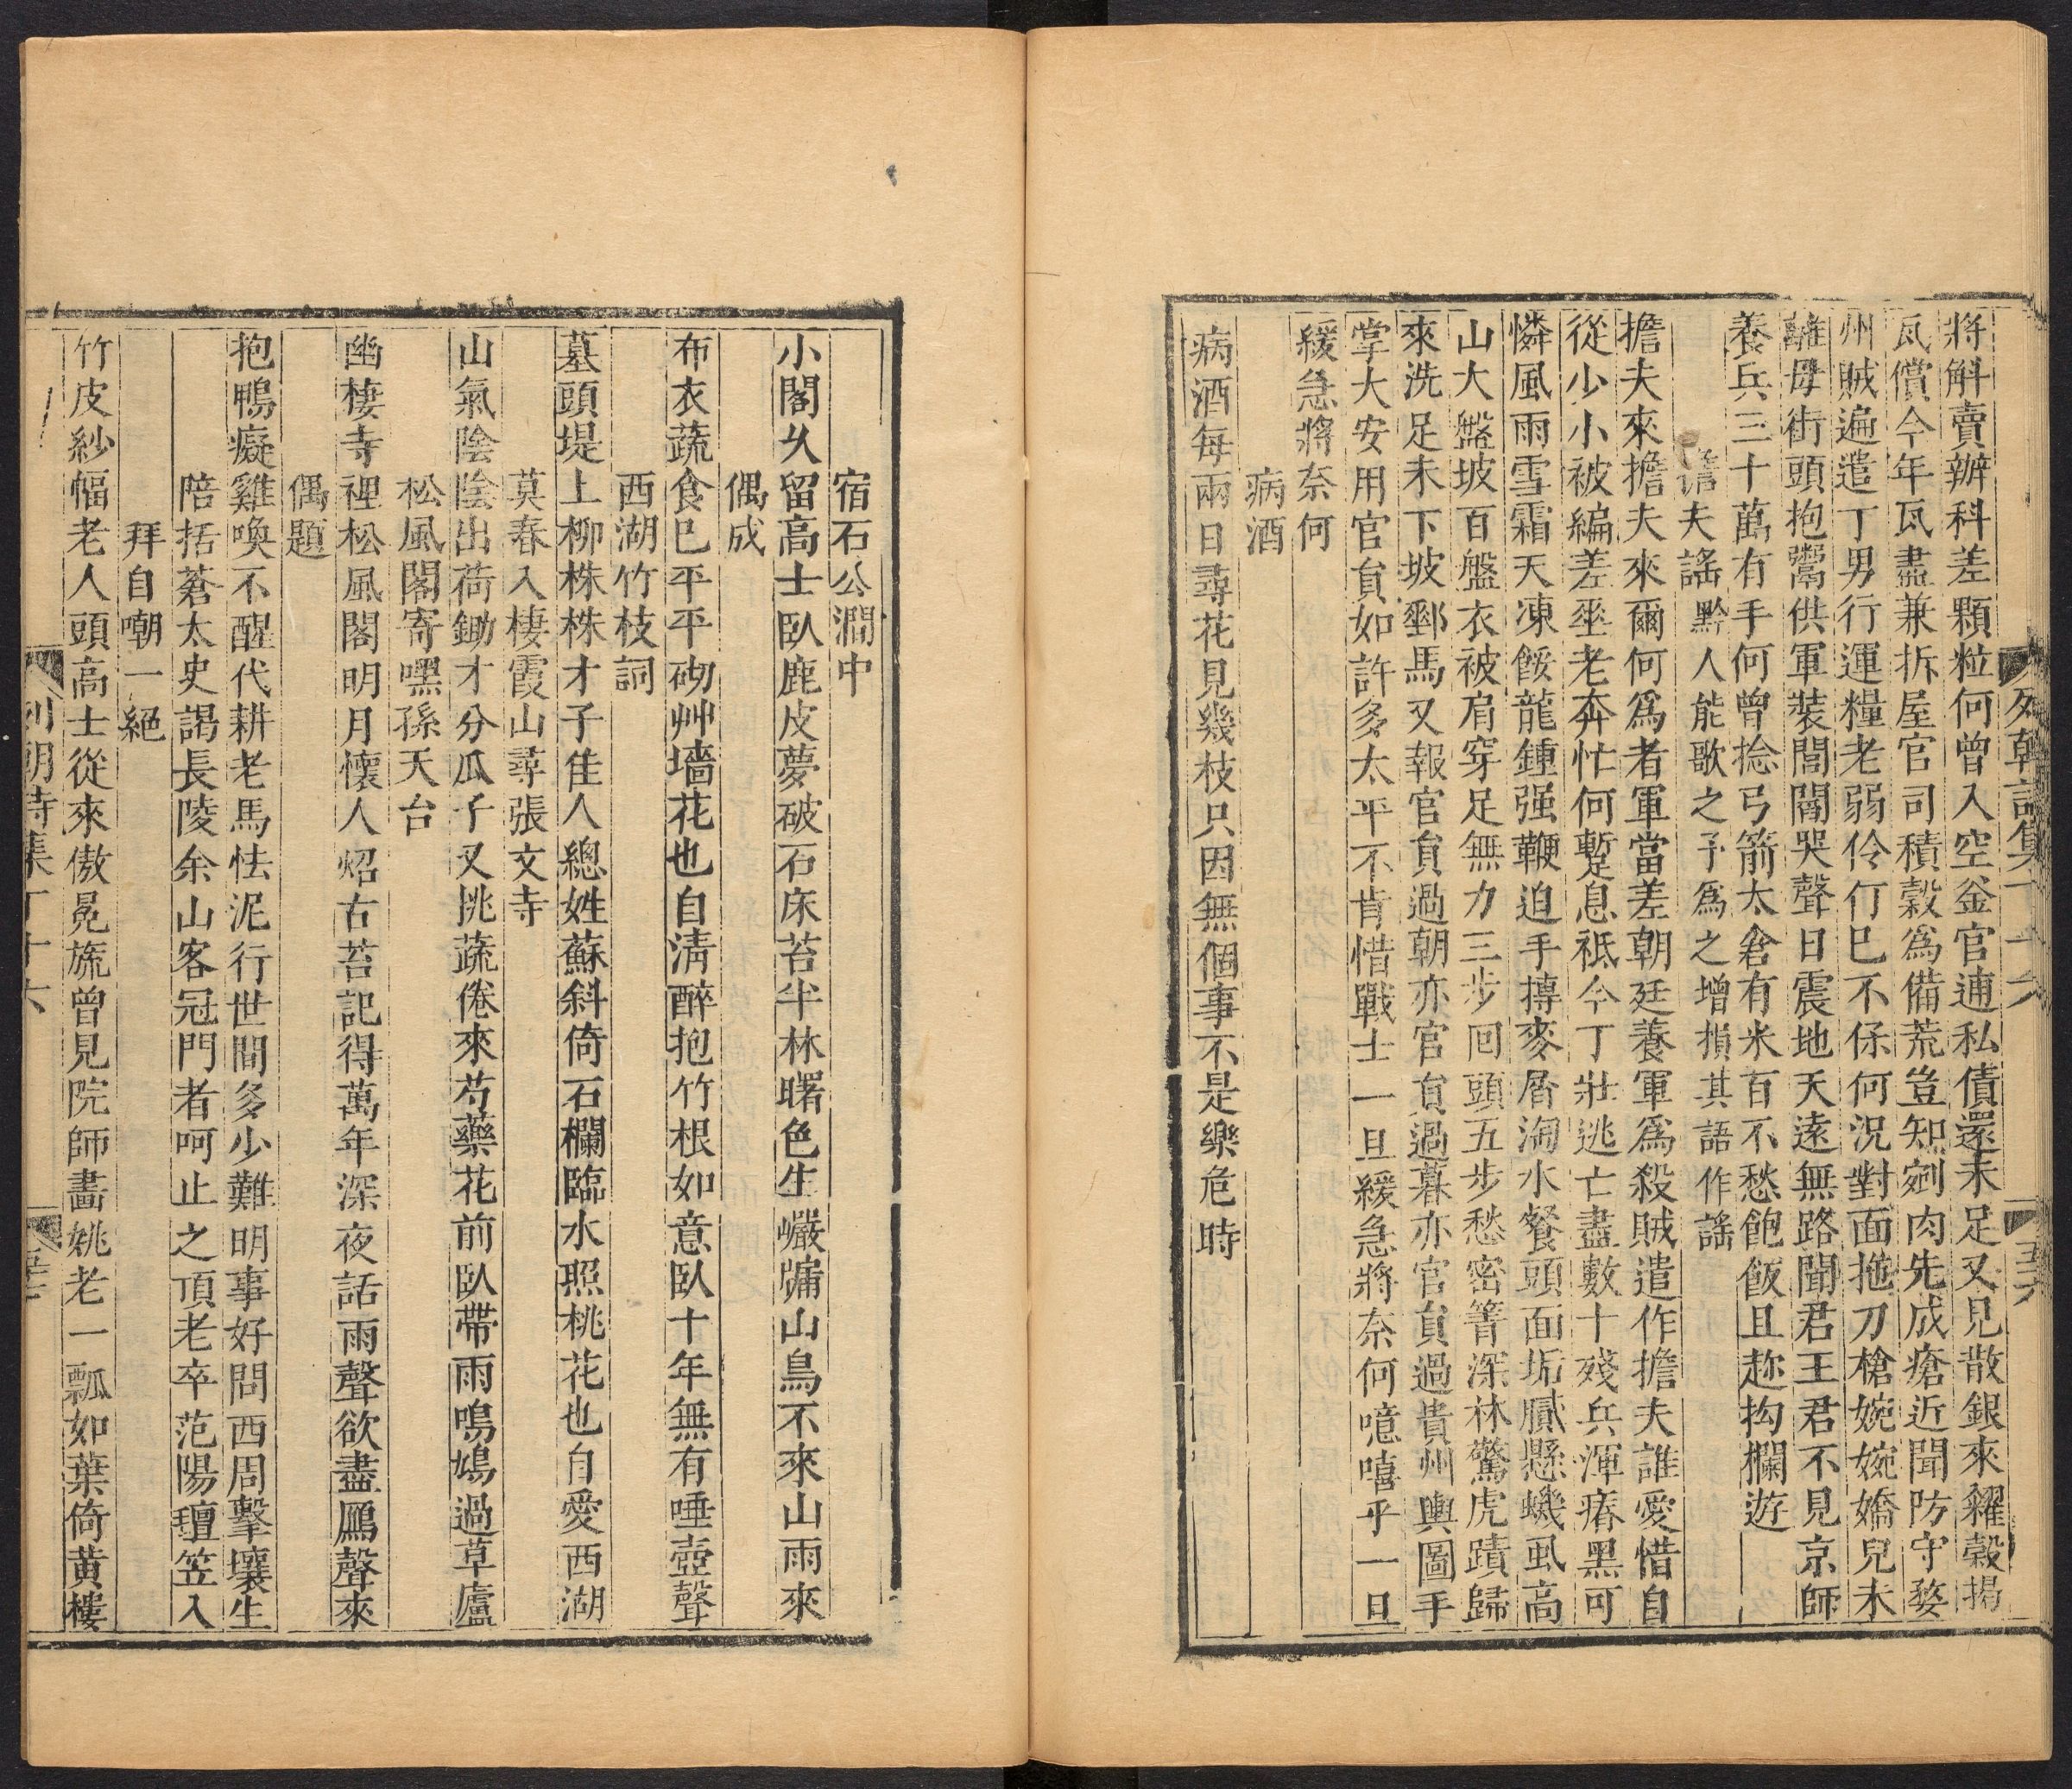 將斛賣辦科差顆粒何曾入空釡官逋私債還未足又見散銀來糴榖揭
瓦償今年瓦盡兼拆屋官司積穀爲備荒豈知剜肉先成瘡近聞防守婺
州賊遍遣丁男行運糧老弱伶仃巳不保何況對面拖刀槍婉婉嬌兒未
離母街頭抱鬻供軍裝閭閻哭聲日震地天遠無路聞君王君不見京師
養兵三十萬有手何曾捻弓箭太倉有米百不愁飽飯且趂抅欄遊
擔夫謠黔人能歌之予爲之增損其語作謠
擔夫來擔夫來爾何爲者軍當差朝廷養軍爲殺賊遣作擔夫誰愛惜自
從少小被編差垂老奔忙何蹔息祗今丁壯逃亡盡數十殘兵渾瘠黑可
憐風雨雪霜天凍餒龍鍾强鞭迫手摶麥屑淘水餐頭面垢膩懸蟣虱高
山大盤坡百盤衣被肩穿足無力三步回頭五步愁密箐深林驚虎蹟歸
來洗足未下坡郵馬又報官負過朝亦官負過暮亦官負過貴州輿圖手
掌大安用官負如許多太平不肯惜戰士一旦緩急將奈何噫嘻乎一旦
緩急將奈何
病酒
病酒每兩日尋花見幾枝只因無個事不是樂危時
列朝詩集丁十六
宿石公澗中
小閣久留高士臥鹿皮夢破石床苔半林曙色生巗牖山鳥不來山雨來
偶成
布衣蔬食巳平平砌艸墻花也自淸醉抱竹根如意臥十年無有唾壺聲
西湖竹枝詞
墓頭堤上柳株株才子佳人總姓蘇斜倚石欄臨水照桃花也自愛西湖
莫春入棲霞山尋張文寺
山氣陰陰陰出荷鋤才分瓜子又挑蔬倦來芍藥花前臥帶雨鳴鳩過草廬
松風閣寄嘿孫天台
幽棲寺裡松風閣明月懷人炤右苔記得萬年深夜話雨聲欲盡鴈聲來
偶題
抱鴨癡雞喚不醒代耕老馬怯泥行世間多少難明事好問西周擊壤生
陪括蒼太史謁長陵余山客冠門者呵止之頂老卒范陽氊笠入
拜自嘲一絕
竹皮紗幅老人頭高士從來傲冕旒曾見院師畵姚老一瓢如葉倚黄樓
列朝詩集丁十六